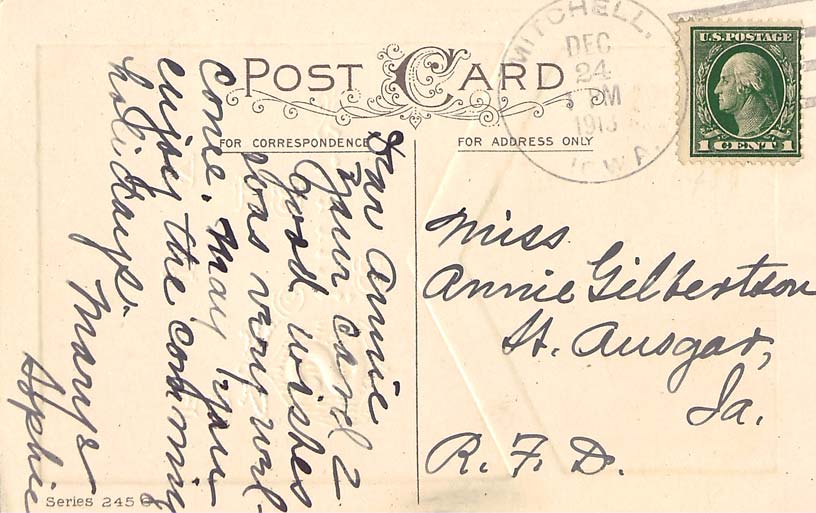 POST CARD
FOR CORRESPONDENCE
FOR ADDRESS ONLY
MITCHELL,
DEC
24
PM
IOWA.
U.S. POSTAGE
1 CENT 1
Dear Annie
Your card &
Good wishes
was very wel-
come. May you
enjoy the comming
holidays.
Mary &
Sophie
Miss
Annie Gilbertson
St. Ansgar,
Ia.
R. F. D.
Series 245